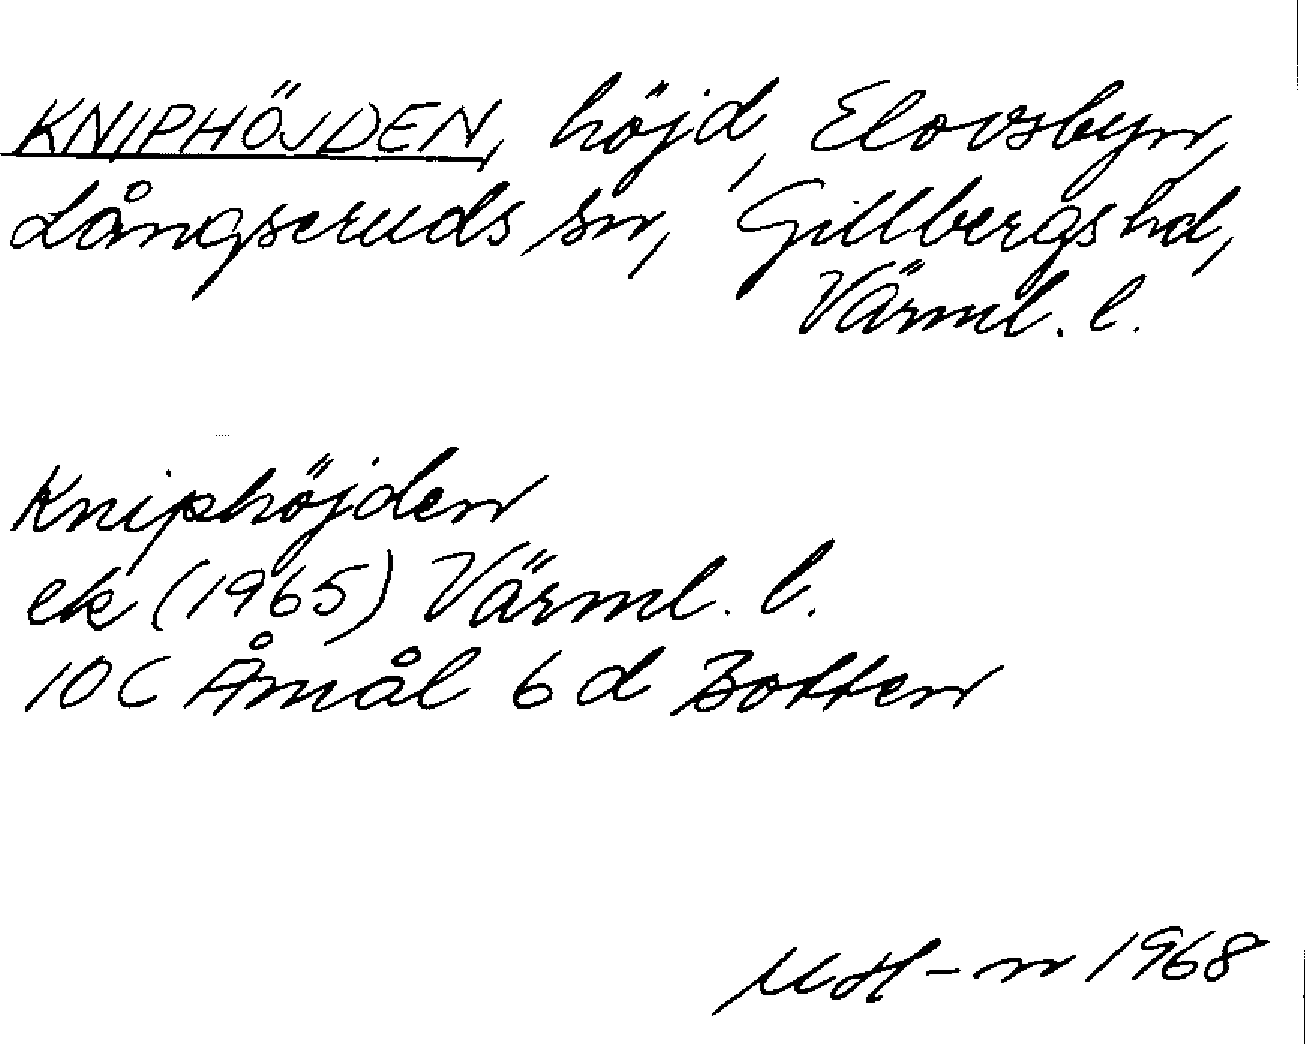 KNIPHÖJDEN, höjd, Elovsbyn,
Långseruds sn, Gillbergs hd,
Värml. l.
Kniphöjden
ek (1965) Värml. l.
10 C Åmål 6 d Botten
MH-n 1968